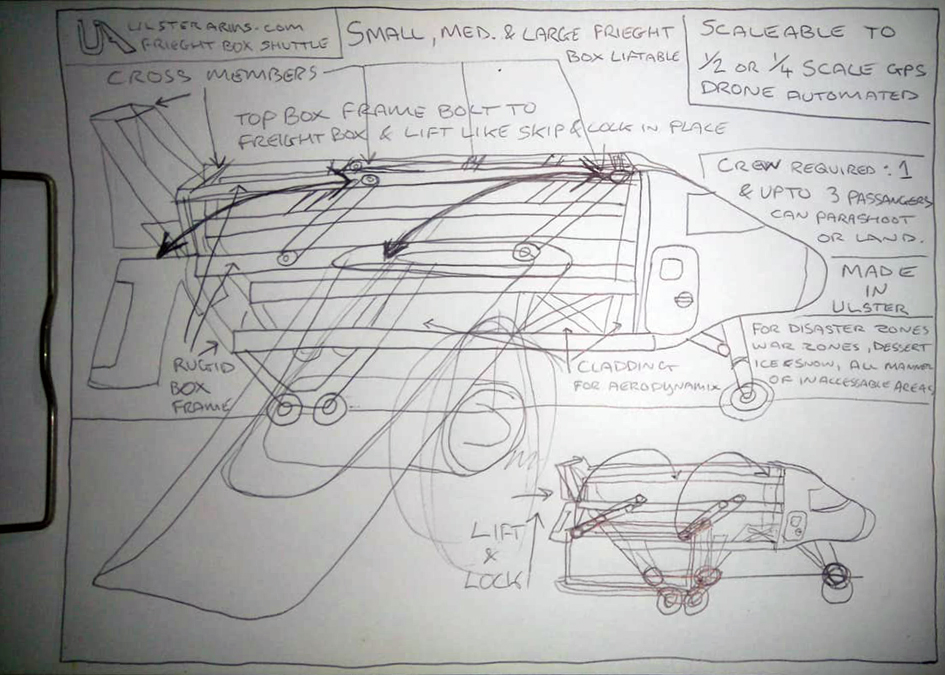 UA ULSTERARMS.COM
FRIEGHT BOX SHUTTLE
SMALL, MED. & LARGE FRIEGHT
BOX LIFTABLE
SCALEABLE TO
1/2 OR 1/4 SCALE GPS
DRONE AUTOMATED
CROSS MEMBERS
TOP BOX FRAME BOLT TO
FREIGHT BOX & LIFT LIKE SKIP & LOCK IN PLACE
CREW REQUIRED : 1
& UPTO 3 PASSANGERS
CAN PARASHOOT
OR LAND.
MADE
IN
ULSTER
FOR DISASTER ZONES
WAR ZONES, DESSERT
ICE & SNOW, ALL MANNER
OF INACCESSABLE AREAS
RUGID
BOX
FRAME
CLADDING
FOR AERODYNAMIX
LIFT
&
LOCK